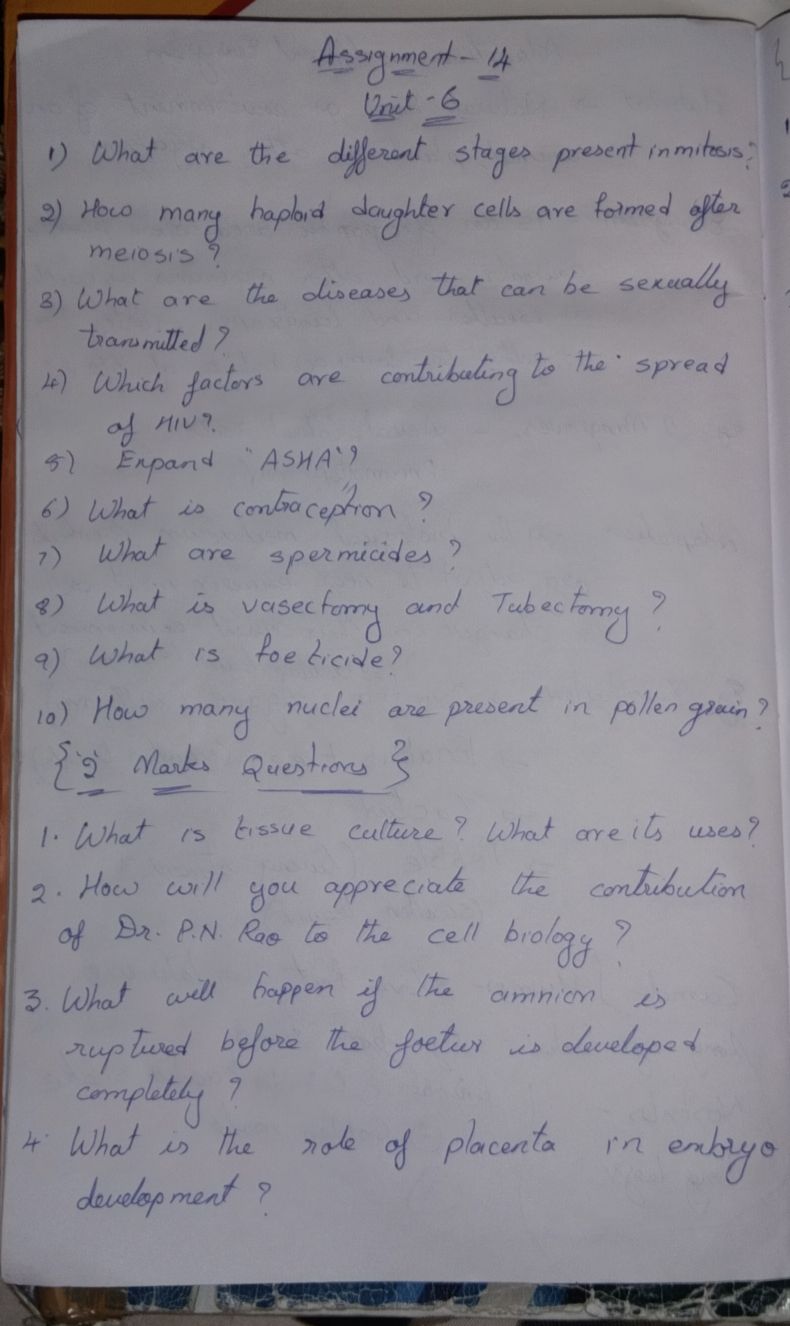 Assignment - 14
Unit - 6
1) What are the different stages present in mitosis?
2) How many haploid daughter cells are formed after
meiosis?
3) What are the diseases that can be sexually
transmitted?
4) Which factors are contributing to the spread
of HIV?
5) Expand "ASHA"?
6) What is contraception?
7) What are spermicides?
8) What is vasectomy and Tubectomy?
9) What is foeticide?
10) How many nuclei are present in pollen grain?
{2 Marks Questions}
1. What is tissue culture? What are its uses?
2. How will you appreciate the contribution
of Dr. P.N. Rao to the cell biology?
3. What will happen if the amnion is
ruptured before the foetus is developed
completely?
4. What is the role of placenta in embryo
development?